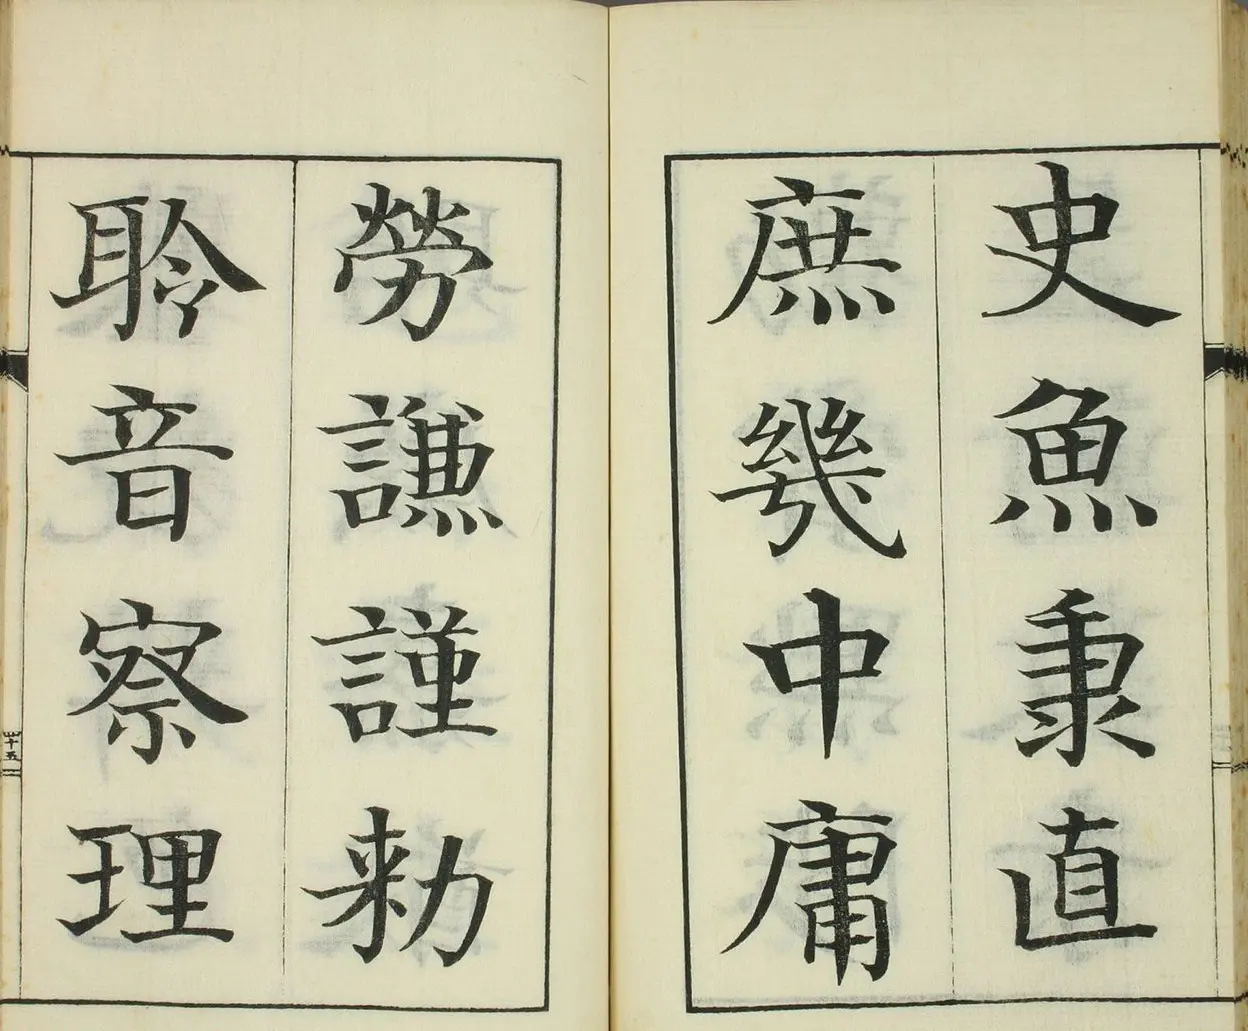 史魚秉直
庶幾中庸
勞謙謹勅
聆音察理
十五